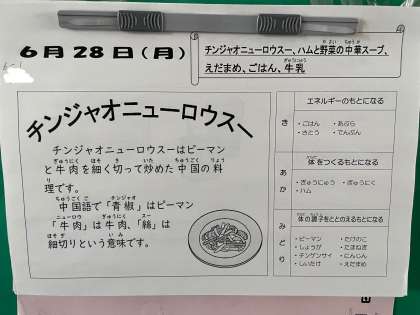 6月28日(月)
チンジャオニューロウスー、ハムと野菜の中華スープ、
えだまめ、ごはん、牛乳
チンジャオニューロウスー
チンジャオニューロウスーはピーマン
と牛肉を細く切って炒めた中国の料
理です。
中国語で「青椒」はピーマン
「牛肉」は牛肉、「絲」は
細切りという意味です。
エネルギーのもとになる
き
・ごはん ・あぶら
・さとう ・でんぷん
体をつくるもとになる
あか
・ぎゅうにゅう ・ぎゅうにく
・ハム
体の調子をととのえるもとになる
みどり
・ピーマン ・たけのこ
・しょうが ・たまねぎ
・チンゲンサイ ・にんじん
・しいたけ ・えだまめ